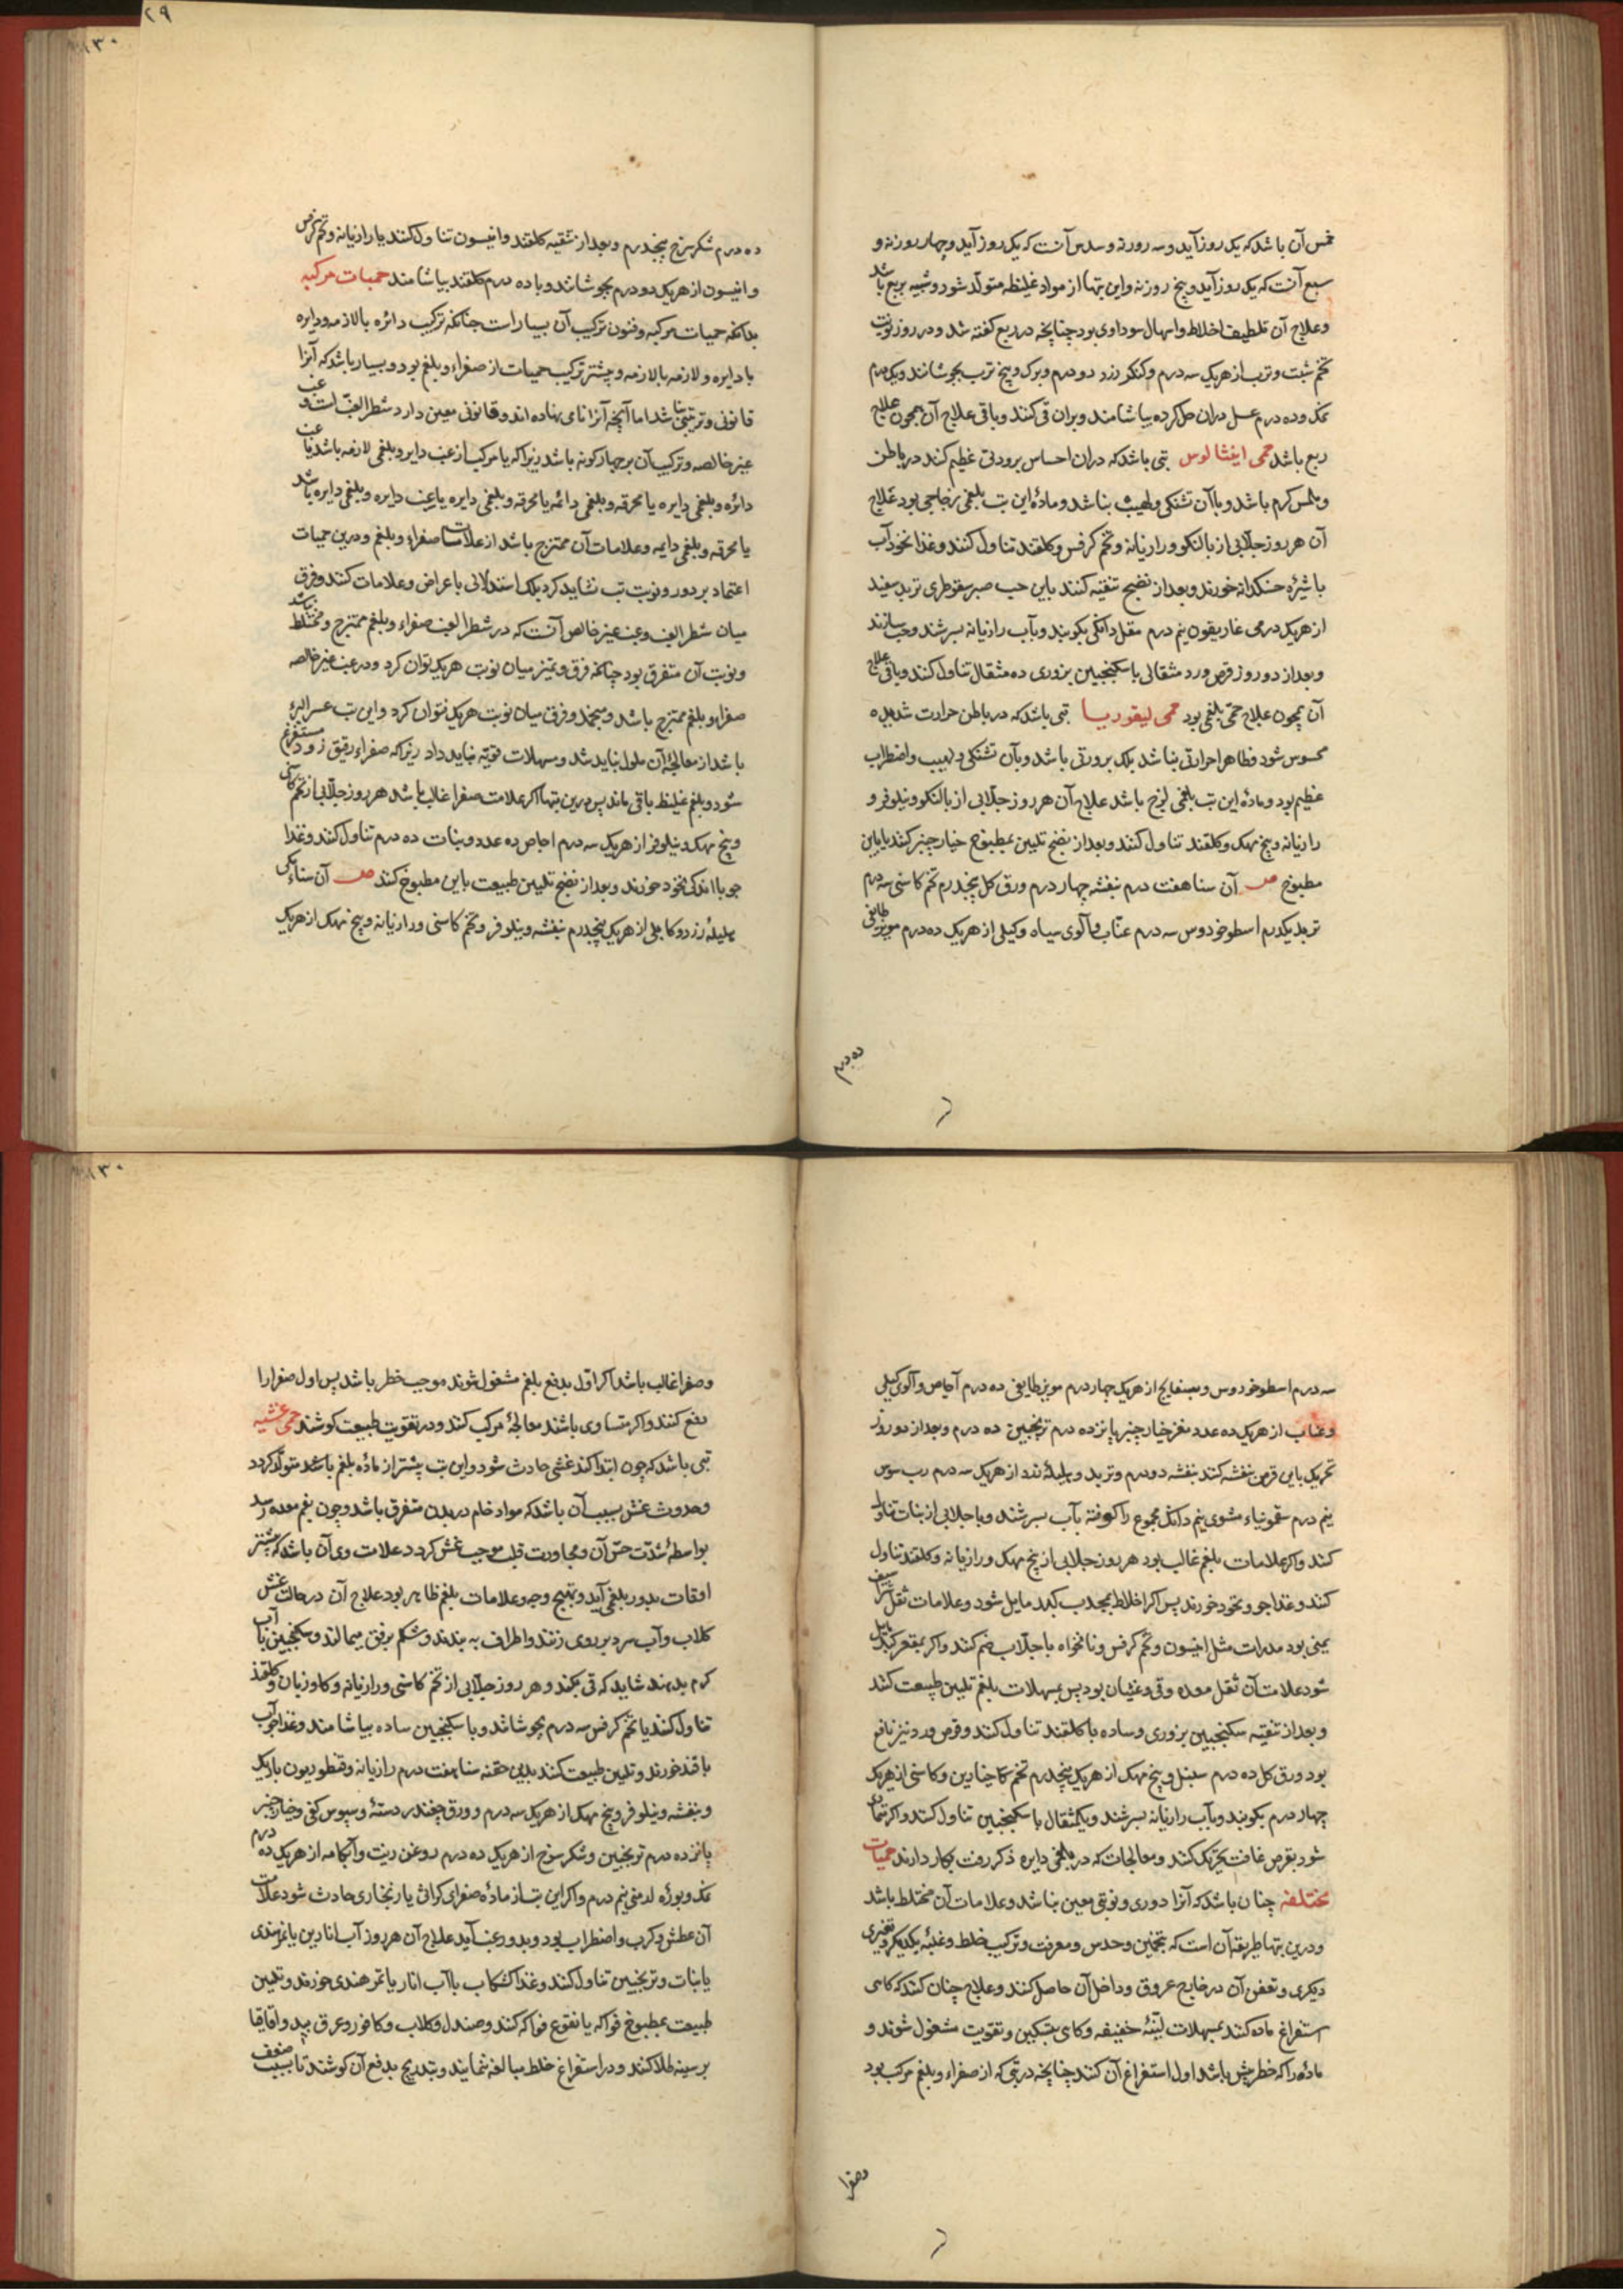 خمس آن باشد که یک روز آید و سه روز نه و سدس آنست که یک روز آید و چهار روز نه و
سبع آنست که یک روز آید و پنج روز نه و این تبها از مواد غلیظه متولد شود و شبیه بربع باشد
و علاج آن تلطیف اخلاط و اسهال سوداوی بود چنانچه در ربع گفته شد و در روز نوبت
تخم شبت و ترب از هریک سه درم و کنکر زرد دو درم و برک و بیخ ترب بجوشانند و یکدرم
نمک و ده درم عسل دران حل کرده بیاشامند و بران قی کنند و باقی علاج آن همچون علاج
ربع باشد حمی ایفیالوس تبی باشد که دران احساس برودتی عظیم کند در باطن
و ملمس کرم باشد و باآن تشنکی و لهیب نباشد و مادهٔ این تب بلغمی زجاجی بود علاج
آن هر روز جلابی از بالنکو و رازیانه و تخم کرفس و کلقند تناول کنند و غذا نخودآب
با شیرهٔ خسکدانه خورند و بعد از نضج تنقیه کنند باین حب صبر سقوطری تربد سفید
از هریک درمی غاریقون نیم درم مقل دانکی بکوبند و بآب رازیانه بسرشند و حب سازند
و بعد از دو روز قرص ورد مثقالی با سکنجبین بزوری ده مثقال تناول کنند و باقی علاج
آن همچون علاج حمی بلغمی بود حمی لیفوریا تبی باشد که در باطن حرارت شدیده
محسوس شود و ظاهرا حرارتی نباشد بلک برودتی باشد و بآن تشنکی و لهیب و اضطراب
عظیم بود و مادهٔ این تب بلغمی لزج باشد علاج آن هر روز جلابی از بالنکو و نیلوفر و
رازیانه و بیخ مهک و کلقند تناول کنند و بعد از نضج تلیین بمطبوخ خیارچنبر کنند یا باین
مطبوخ ص آن سنا هفت درم بنفشه چهار درم ورق کل پنجدرم تخم کاسنی سه درم
تربد یکدرم اسطوخودوس سه درم عناب و آلوی سیاه و کیلی از هریک ده درم مویز طایفی
ده درم
ده درم شکر سرخ پنجدرم و بعد از تنقیه کلقند و انیسون تناول کنند یا رازیانه و تخم کرفس
و انیسون از هریک دو درم بجوشانند و با ده درم کلقند بیاشامند حمیات مرکبه
بدانکه حمیات مرکبه و فنون ترکیب آن بسیارست چنانکه ترکیب دائره با لازمه و دایره
با دایره و لازمه با لازمه و بیشتر ترکیب حمیات از صفراء و بلغم بود و بسیار باشد که آنرا
قانونی و ترتیبی نباشد اما آنچه آنرا نامی نهاده اند و قانونی معین دارد شطر الغب است و غب
غیر خالصه و ترکیب آن بر چهار کونه باشد زیرا که یا مرکب از غب دایر و بلغمی لازمه باشد یا غب
دائره و بلغمی دایره یا محرقه و بلغمی دائمه یا محرقه و بلغمی دایره یا غب دایره و بلغمی دایره باشد
یا محرقه و بلغمی دایمه و علامات آن ممتزج باشد از علامات صفراء و بلغم و درین حمیات
اعتماد بر دور و نوبت تب نشاید کرد بلک استدلال باعراض و علامات کنند و فرق
میان شطر الغب و غب غیر خالص آنست که در شطر الغب صفراء و بلغم ممتزج و مختلط نباشد
و نوبت آن متفرق بود چنانکه فرق و تمیز میان نوبت هریک توان کرد و در غب غیر خالصه
صفراء و بلغم ممتزج باشد و متحد و فرق میان نوبت هریک نتوان کرد و این تب عسر البرء
باشد از معالجهٔ آن ملول نباید شد و مسهلات قویه نباید داد زیرا که صفراء رقیق زود مستفرغ
شود و بلغم غلیظ باقی ماند پس درین تبها اکر علامت صفرا غالب باشد هر روز جلابی از تخم کاسنی
و بیخ مهک و نیلوفر از هریک سه درم اجاص ده عدد و نبات ده درم تناول کنند و غذا
جو با اندکی نخود خورند و بعد از نضج تلیین طبیعت باین مطبوخ کنند ص آن سناء مکی
هلیلهٔ زرد و کابلی از هریک پنجدرم بنفشه و نیلوفر و تخم کاسنی و رازیانه و بیخ مهک از هریک
سه درم اسطوخودوس و بسفایج از هریک چهار درم مویز طایفی ده درم آجاص و آلوی کیلی
و عناب از هریک ده عدد مغز خیارچنبر پانزده درم ترنجبین ده درم و بعد از دو روز
تحریک باین قرص بنفشه کنند بنفشه دو درم و تربد و هلیلهٔ زرد از هریک سه درم رب سوس
نیم درم سقمونیاء مشوی نیم دانک مجموع را کوفته بآب بسرشند و با جلابی از نبات تناول
کنند و اکر علامات بلغم غالب بود هر روز جلابی از بیخ مهک و رازیانه و کلقند تناول
کنند و غذا جو و نخود خورند پس اکر اخلاط بمحدب کبد مایل شود و علامات ثقل شراسیف
یمنی بود مدرات مثل انیسون و تخم کرفس و نانخواه با جلاب ضم کنند و اکر بمقعر کبد مایل
شود علامت آن ثقل معده و قی و غثیان بود پس بمسهلات بلغم تلیین طبیعت کنند
و بعد از تنقیه سکنجبین بزوری و ساده با کلقند تناول کنند و قرص ورد نیز نافع
بود ورق کل ده درم سنبل و بیخ مهک از هریک پنجدرم تخم خیارین و کاسنی از هریک
چهار درم بکوبند و بآب رازیانه بسرشند و یکمثقال با سکنجبین تناول کنند و اکر
شود بقرص غافت تحریک کنند و معالجات که در بلغمی دایره ذکر رفت بکار دارند حمیات
مختلفه چنان باشد که آنرا دوری و نوبتی معین نباشد و علامات آن مختلط باشد
و درین تبها طریقه آن است که بتخمین و حدس و معرفت و ترکیب خلط و غلبهٔ یکی بر
دیکری و تعفن آن در خارج عروق و داخل آن حاصل کنند و علاج چنان کنند که کاهی
استفراغ ماده کنند بمسهلات لینهٔ خفیفه و کاهی بتسکین و تقویت مشغول شوند و
مادهٔ را که خطر بیش باشد اول استفراغ آن کنند چنانچه در تبی که از صفراء و بلغم مرکب بود
و صفرا
و صفرا غالب باشد اکر اول بدفع بلغم مشغول شوند موجب خطر باشد پس اول صفرا را
دفع کنند و اکر متساوی باشند معالجهٔ مرکب کنند و در تقویت طبیعت کوشند حمی غشیه
تبی باشد که چون ابتدا کند غشی حادث شود و این تب بیشتر از مادهٔ بلغم باشد متولد کردد
و حدوث غش بسبب آن باشد که مواد خام در بدن متفرق باشد و چون بفم معده رسد
بواسطهٔ شدت حس آن و مجاورت قلب موجب غش کردد علامت وی آن باشد که بیشتر
اوقات بدور بلغمی آید و تهیج وجه و علامات بلغم ظاهر بود علاج آن در حالت غش
کلاب و آب سرد بر روی زنند و اطراف به بندند و شکم برفق بمالند و سکنجبین با آب
کرم بدهند شاید که قی بکند و هر روز جلابی از تخم کاسنی و رازیانه و کاوزبان و کلقند
تناول کنند یا تخم کرفس سه درم بجوشانند و با سکنجبین ساده بیاشامند و غذا جوآب
با قند خورند و تلیین طبیعت کنند بدین حقنه سنا هفت درم رازیانه و قنطوریون باریک
و بنفشه و نیلوفر و بیخ مهک از هریک سه درم و ورق چغندر دستهٔ و سبوس کفی و خیارچنبر
پانزده درم ترنجبین و شکر سرخ از هریک ده درم روغن زیت و آبکامه از هریک ده درم
نمک و بورهٔ ارمنی نیم درم و اکر این تب از مادهٔ صفرای کراثی یا زنجاری حادث شود علامت
آن عطش و کرب و اضطراب بود و بدور غب آید علاج آن هر روز آب انارین یا تمرهندی
یا نبات و ترنجبین تناول کنند و غذا کشکاب باآب انار یا تمر هندی خورند و تلیین
طبیعت بمطبوخ فواکه یا نقوع فواکه کنند و صندل و کلاب و کافور و عرق بید و اقاقیا
بر سینه طلا کنند و در استفراغ خلط مبالغه نمایند و بتدریج بدفع آن کوشند تا بسبب ضعف